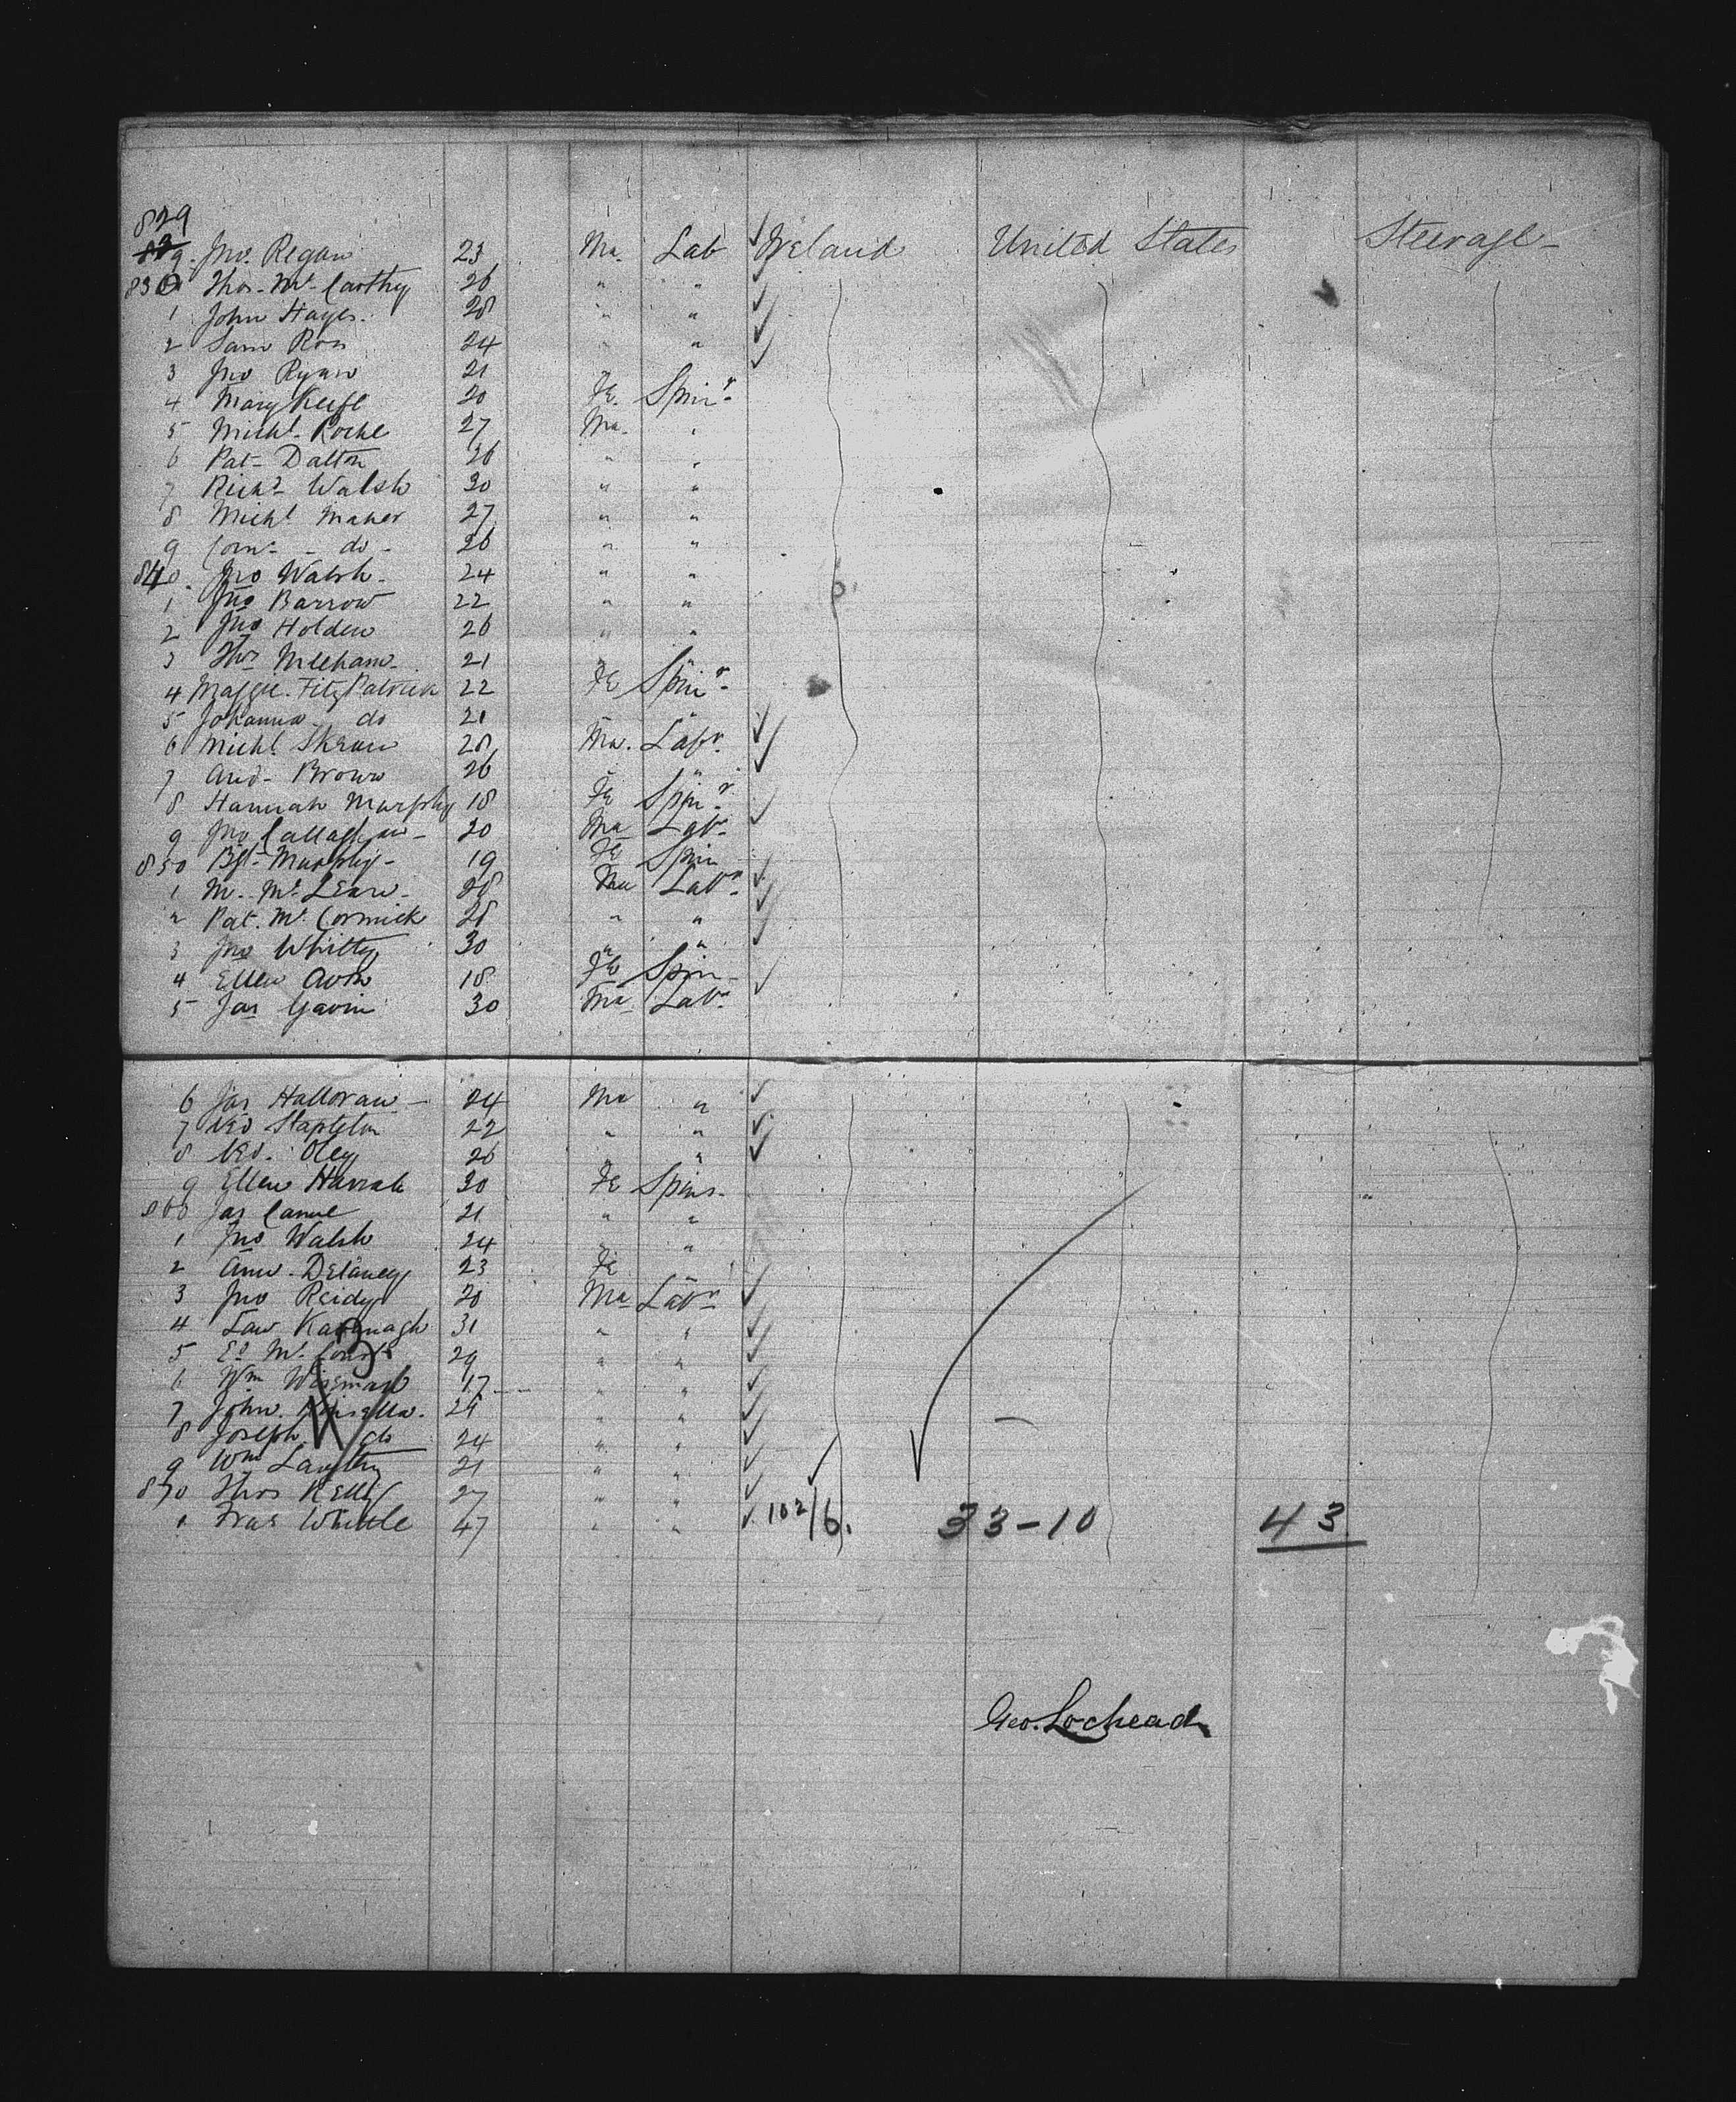 829
9. Jno. Regan 23 Ma. Lab Ireland United States Steerage
830 Thos. Mc Carthy 26 " "
1 John Hayes. 28 " "
2 Sam Ross 24 " "
3 Jno Ryan 21
4 Mary Keefe 20 Fe. Spinr
5 Michl. Roche 27 Ma. "
6 Pat Dalton 26 " "
7 Richd Walsh 30 " "
8 Michl Maher 27 " "
9 Corns - do - 26 " "
840. Jno Walsh 24 " "
1 Jno Barrow 22 " "
2 Jno Holden 26 " "
3 Thos Meehan 21 "
4 Maggie FitzPatrick 22 Fe Spinr
5 Johanna do 21 " "
6 Michl. 28 Ma. Labr.
7 And. Brown 26 " "
8 Hannah Murphy 18 Fe Spinr
9 Jno Callaghan 20 Ma Labr
850 Bgt Murphy 19 Fe Spin
1 M. Mc 28 Ma Labr
2 Pat. Mc Cormick 28 " "
3 Jno Whitty 30 " "
4 Ellen 18 Fe Spin
5 Jas Gavin 30 Ma Labr
6 Jas Halloran 24 Ma "
7 Stapleton 22 " "
8 26 " "
9 Ellen 30 Fe Spins.
860 Jas 21 " "
1 Jno Walsh 24 " "
2 Ann Delaney 23 Fe "
3 Jno Reidy 20 Ma Labr
4 Law Kavanagh 31 " "
5 Ed Mc 29 " "
6 Wm 17 " "
7 John Kinsella. 24 " "
8 Joseph do 24 " "
9 Wm 21 " "
870 Thos Kelly 27 " "
1 Fras Whittle 47 " " 102/6. 33-10 43
Geo. Lochead